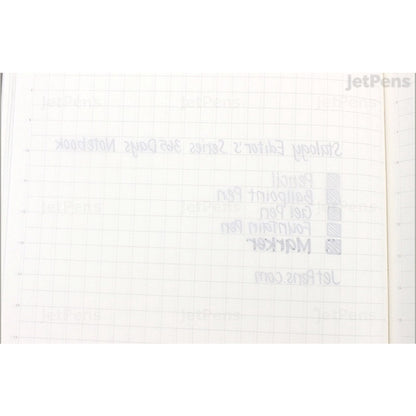 JetPens
JetPens JetPens JetPens
Stalogy Editor's Series 365 Days Notebook
Pencil
Ballpoint Pen
JetPens JetPens JetPens
Gel Pen
Fountain Pen
Marker
JetPens.com
JetPens JetPens JetPens